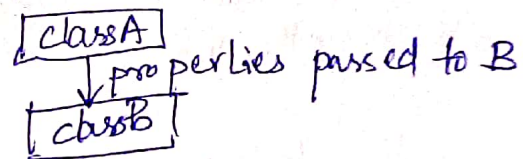 classA
properties passed to B
classB